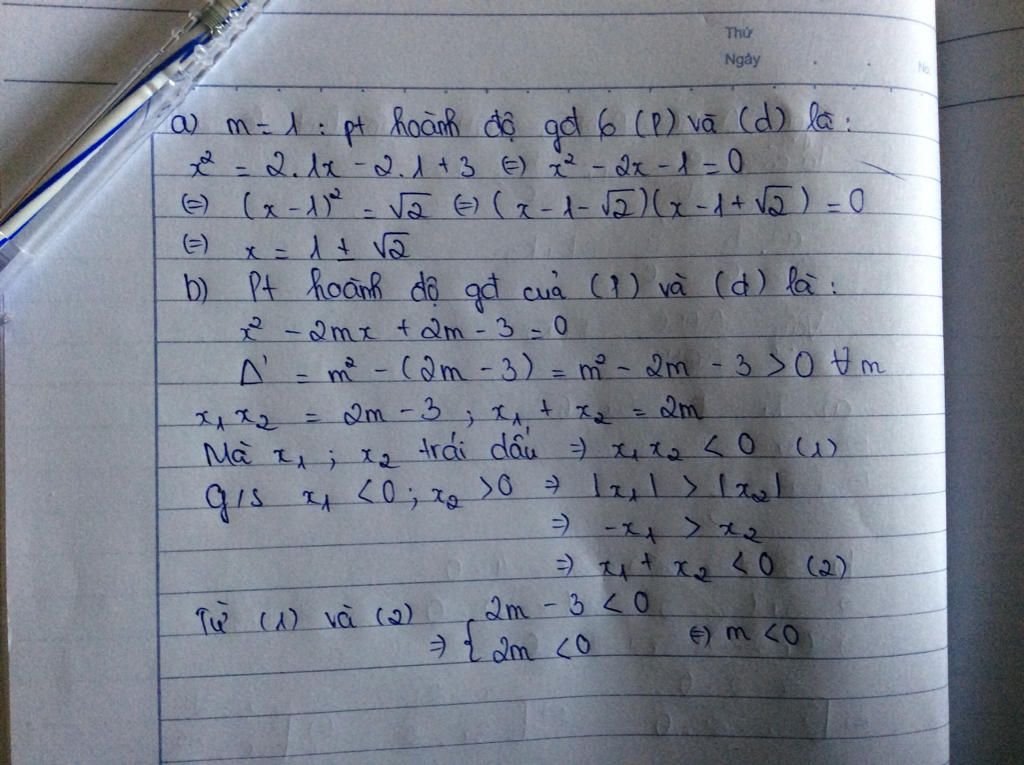 Thứ
Ngày
No
a) m = 1 : pt hoành độ gđ là (P) và (d) là :
x² = 2.1x - 2.1 + 3 ⇔ x² - 2x - 1 = 0
⇔ (x - 1)² = √2 ⇔ (x - 1 - √2)(x - 1 + √2) = 0
⇔ x = 1 ± √2
b) Pt hoành độ gđ của (P) và (d) là :
x² - 2mx + 2m - 3 = 0
Δ' = m² - (2m - 3) = m² - 2m - 3 > 0 ∀ m
x₁x₂ = 2m - 3 ; x₁ + x₂ = 2m
Mà x₁ ; x₂ trái dấu ⇒ x₁x₂ < 0 (1)
G/s x₁ < 0 ; x₂ > 0 ⇒ |x₁| > |x₂|
⇒ -x₁ > x₂
⇒ x₁ + x₂ < 0 (2)
Từ (1) và (2) ⇒ { 2m - 3 < 0
2m < 0 ⇔ m < 0